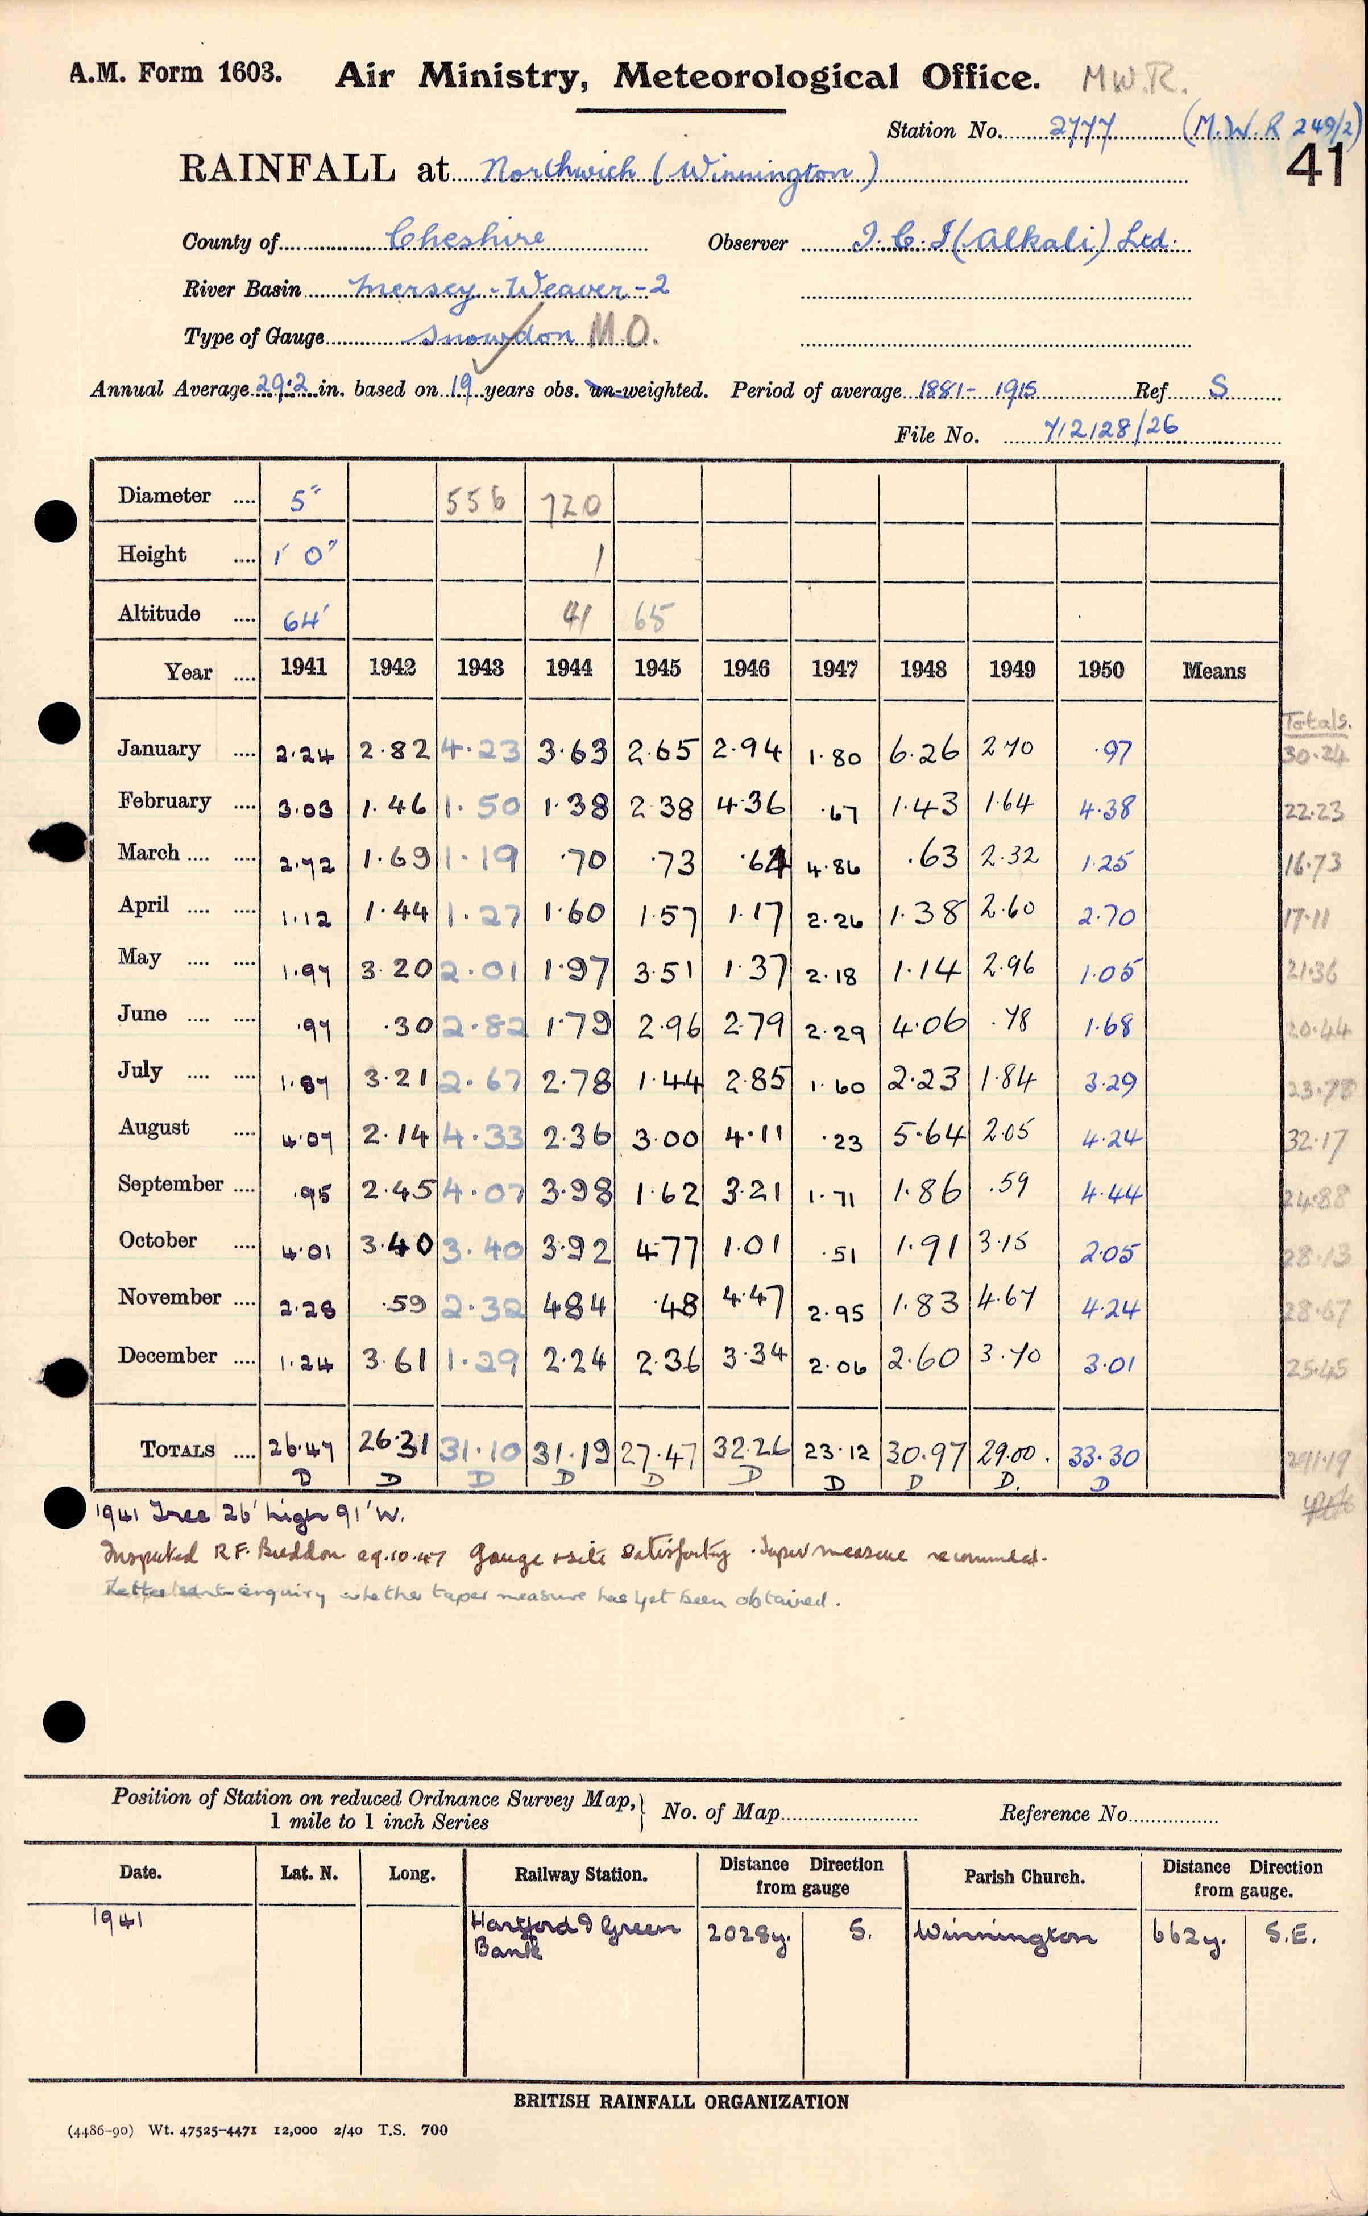 A.M. Form 1603. Air Ministry, Meteorological Office. M.W.R.
Station No. 2777 (M.W.R 249/2)
41
RAINFALL at Northwich (Winnington)
County of Cheshire Observer I.C.I (Alkali) Ltd.
River Basin Mersey - Weaver - 2
Type of Gauge Snowdon M.O.
Annual Average 29.2 in. based on 19 years obs. un-weighted. Period of average 1881 - 1915 Ref S
File No. 712128/26
Diameter .... 5" 556 720
Height .... 1' 0" 1
Altitude .... 64' 41 65
Year .... 1941 1942 1943 1944 1945 1946 1947 1948 1949 1950 Means
Totals.
January .... 2.24 2.82 4.23 3.63 2.65 2.94 1.80 6.26 2.70 .97 30.24
February .... 3.03 1.46 1.50 1.38 2.38 4.36 .67 1.43 1.64 4.38 22.23
March .... .... 2.72 1.69 1.19 .70 .73 .64 4.86 .63 2.32 1.25 16.73
April .... .... 1.12 1.44 1.27 1.60 1.57 1.17 2.26 1.38 2.60 2.70 17.11
May .... .... 1.97 3.20 2.01 1.97 3.51 1.37 2.18 1.14 2.96 1.05 21.36
June .... .... .97 .30 2.82 1.79 2.96 2.79 2.29 4.06 .78 1.68 20.44
July .... .... 1.87 3.21 2.67 2.78 1.44 2.85 1.60 2.23 1.84 3.29 23.78
August .... 4.07 2.14 4.33 2.36 3.00 4.11 .23 5.64 2.05 4.24 32.17
September .... .95 2.45 4.07 3.98 1.62 3.21 1.71 1.86 .59 4.44 24.88
October .... 4.01 3.40 3.40 3.92 4.77 1.01 .51 1.91 3.15 2.05 28.13
November .... 2.28 .59 2.32 4.84 .48 4.47 2.95 1.83 4.67 4.24 28.67
December .... 1.24 3.61 1.29 2.24 2.36 3.34 2.06 2.60 3.70 3.01 25.45
TOTALS .... 26.47 26.31 31.10 31.19 27.47 32.26 23.12 30.97 29.00. 33.30 291.19
D D D D D D D D D. D
1941 Tree 26' high 91' W.
Inspected R.F. Buddon 29.10.47 Gauge & site satisfactory. Taper measure recommended.
Letter sent enquiry whether taper measure has yet been obtained.
Position of Station on reduced Ordnance Survey Map, 1 mile to 1 inch Series } No. of Map Reference No.
Date. Lat. N. Long. Railway Station. Distance from gauge Direction Parish Church. Distance from gauge. Direction
1941 Hartford & Green Bank 2028y. S. Winnington 662y. S.E.
BRITISH RAINFALL ORGANIZATION
(4486-90) Wt. 47525-4471 12,000 2/40 T.S. 700